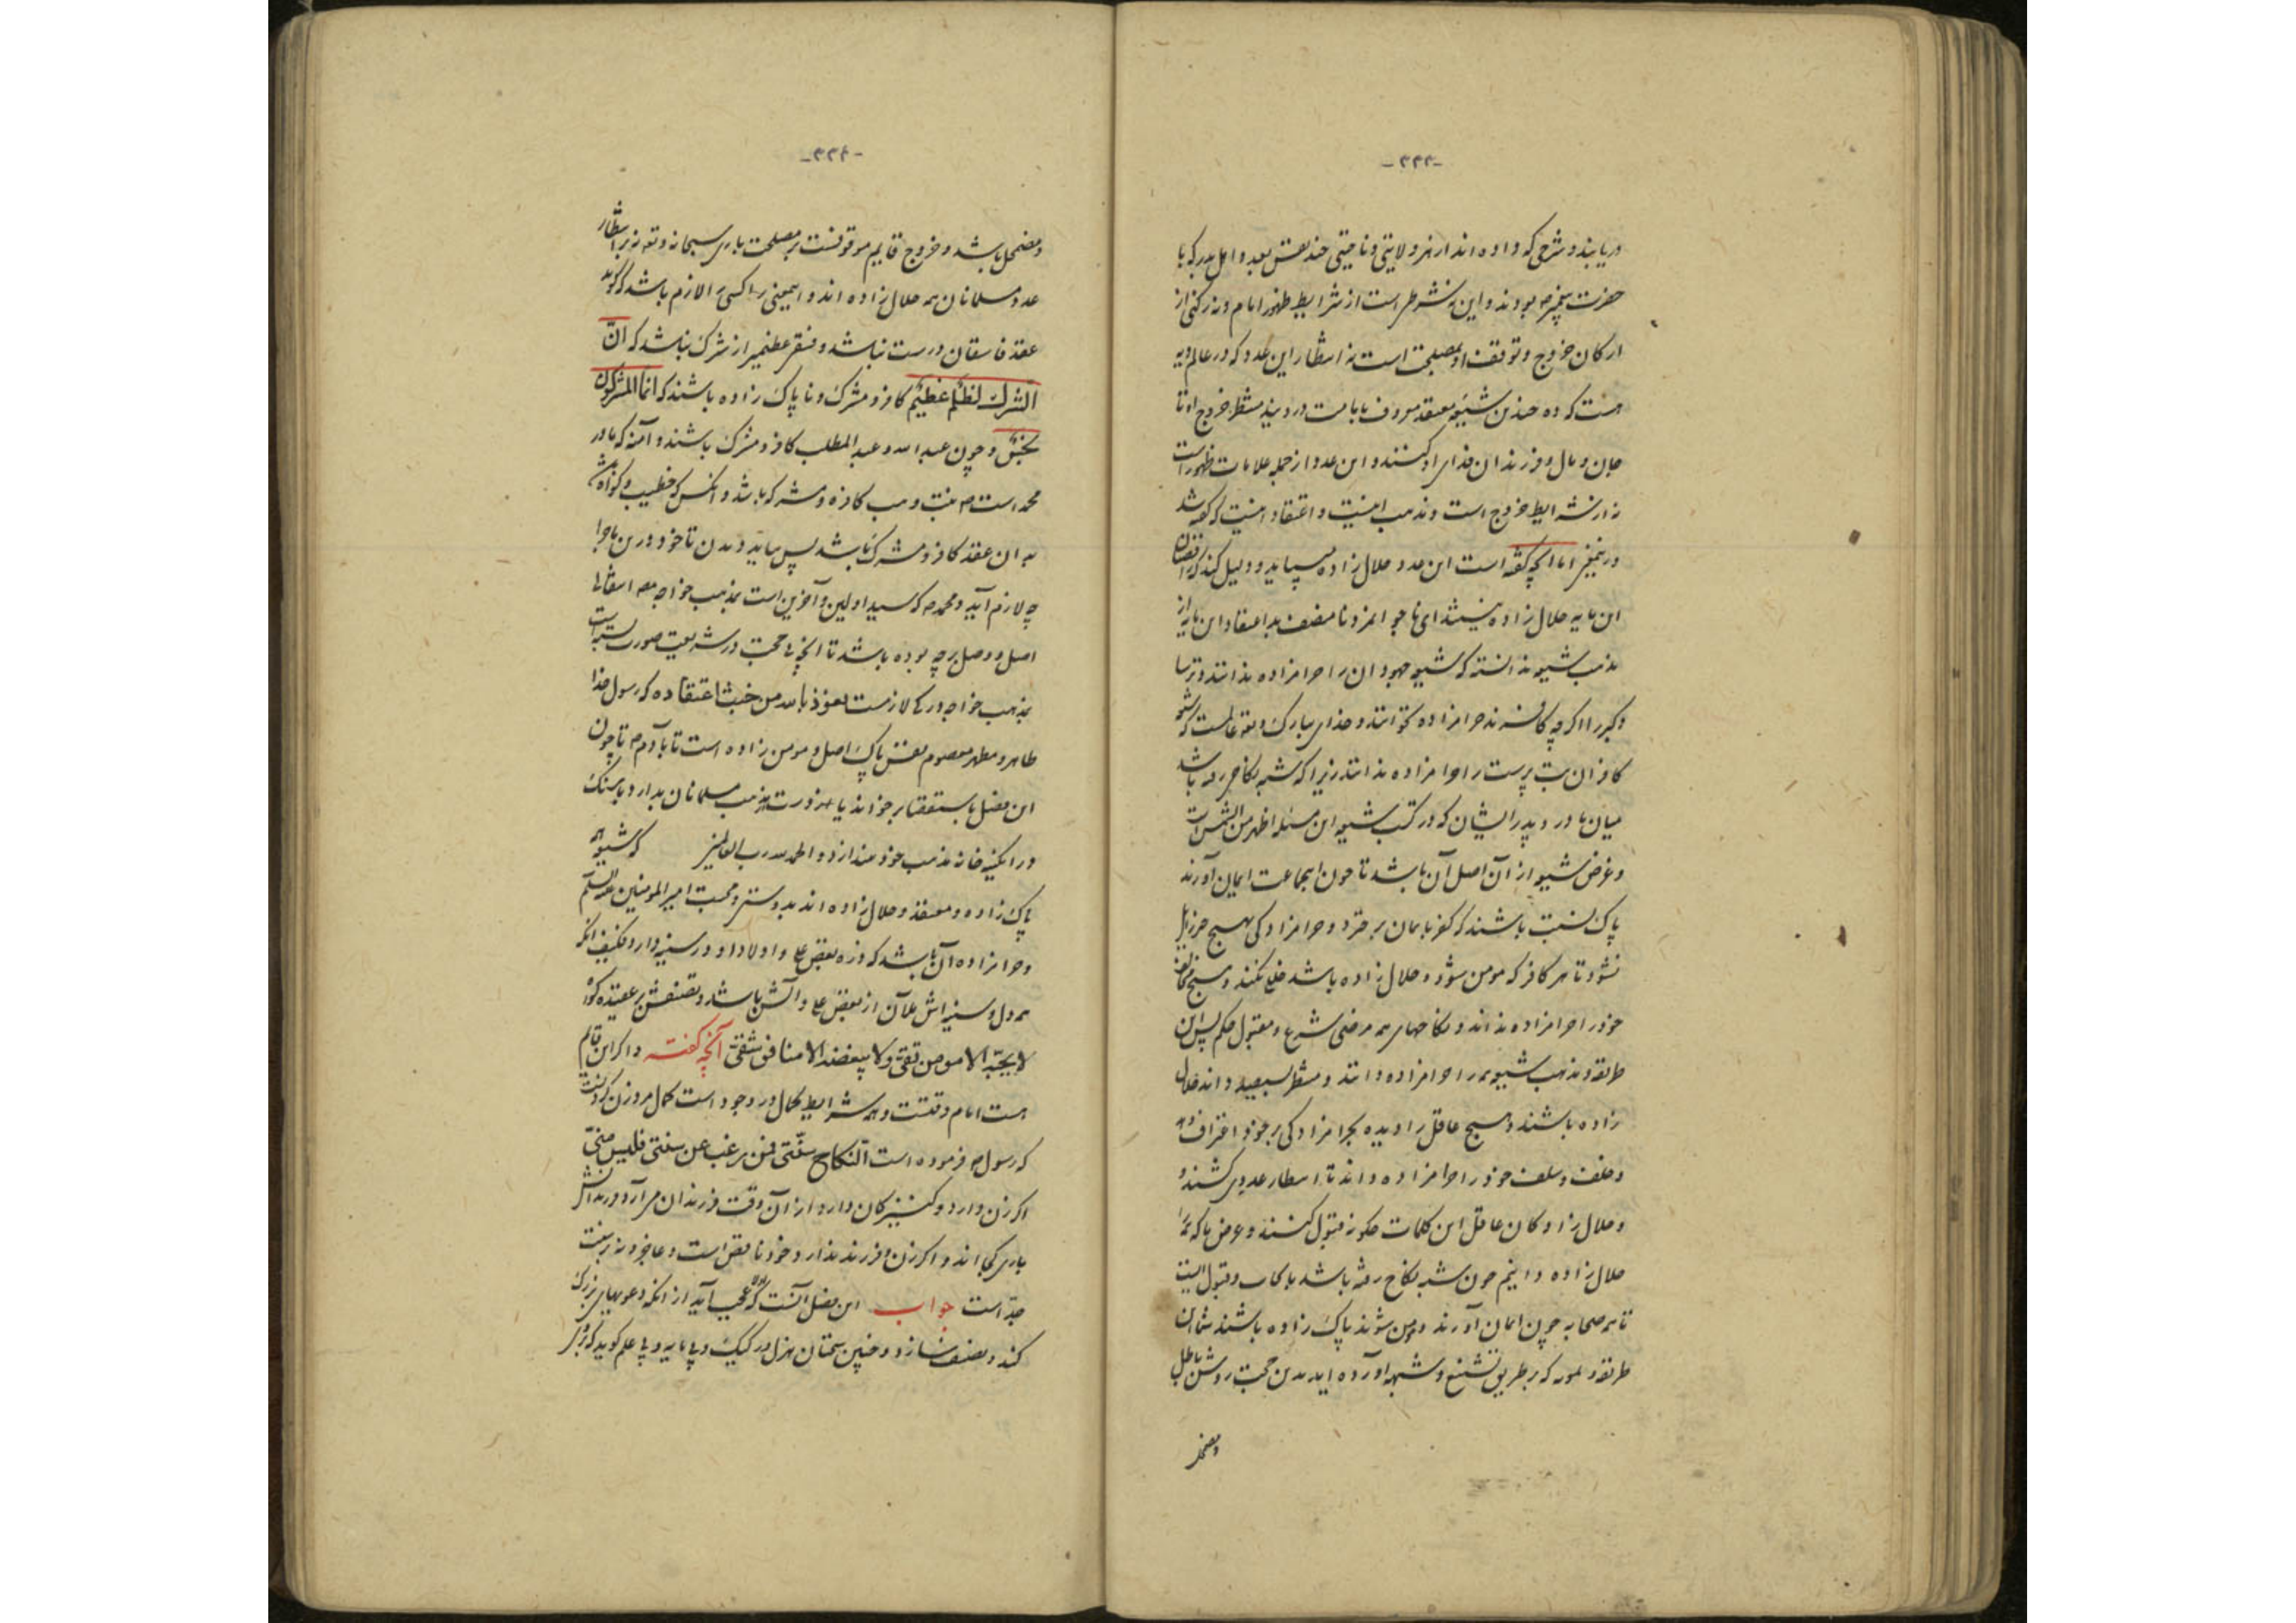 -۳۳۳-
دریابند و شرحی که داده اند از هر ولایتی و ناحیتی چند کس بعدد اهل بدر که با
حضرت پیغمبر ص بودند و این نه شرط است از شرایط ظهور امام و نه رکنی از
ارکان خروج و توقف او بمصلحت است نه انتظار این عدد که در عالم ده
هست که ده چندین شیعه معتقد معروف بامامت در وی‌ند منتظر خروج او تا
جان و مال و فرزندان فدای او کنند و این عدد از جمله علامات ظهور است
نه از شرایط خروج است و مذهب اینست و اعتقاد اینست که گفته شد
درین خبر اما آنچه گفته است این عدد حلال زاده میباید و دلیل کند که رافضیان
این مایه حلال زاده نیستند ای ناجوانمرد نامنصف بد اعتقاد این مایه از
مذهب شیعه ندانسته که شیعه جهودان را حرامزاده ندانند و ترسا
و گبر را اگرچه کافرند حرامزاده نگویند و خدای تبارک و تعه عالمست که شیعه
کافران بت پرست را حرامزاده ندانند زیرا که شبه نکاح رفته باشد
میان مادر و پدر ایشان که در کتب شیعه این مسئله اظهر من الشمس است
و غرض شیعه از آن اصل آن باشد تا چون این جماعت ایمان آورند
پاک نسبت باشند که کفر بایمان برخیزد و حرامزادگی بهیچ چیز زایل
نشود تا هر کافر که مومن شود و حلال زاده باشد خلع نکنند و هیچ مخالف
خود را حرامزاده نداند و نکاحهای همه مرضی شرع و مقبول حکم پس این
طریقه و مذهب شیعه همه را حرامزاده دانند و منتظر سیصد و اند حلال
زاده باشند و هیچ عاقل را دیده بحرامزادگی بر خود اعتراف دهد
و خلف و سلف خود را حرامزاده داند تا انتظار عددی کشند و
و حلال زادگان عاقل این کلمات چگونه قبول کنند و عوض ما که همه را
حلال زاده دانیم چون شبه نکاح رفته باشد بایجاب و قبول اینست
تا همه صحابه چون ایمان آورند و مومن شوند پاک زاده باشند نشان
طریقه و که بر طریق تشنیع و شبهه آورده اید بدین حجت روشن باطل
و مضمحل
-۳۳۴-
و مضمحل باشد و خروج قایم موقوفست بر مصلحت باری سبحانه و تعه نه بر انتظار
عدد و مسلمانان همه حلال زاده اند و این معنی را کسی را لازم باشد که گوید
عقد فاسقان درست نباشد و فسق عظیمتر از شرک نباشد که انّ
الشرک لظلم عظیم کافر و مشرک و ناپاک زاده باشند که انما المشرکون
نجس و چون عبد الله و عبد المطلب کافر و مشرک باشند و آمنه که مادر
محمد است ص بنت وهب کافره و مشرکه باشد و آنکس که خطیب و گواه باشد
بدان عقد کافر و مشرک باشد پس بباید دیدن تا خود درین ماجرا
چه لازم آید و محمد ص که سید اولین و آخرین است بمذهب خواجه مصنف انتقالی
اصل و وصل بر چه بوده باشد تا آنچه حجت در شریعت صورت بسته است
بمذهب خواجه درکی لازمست نعوذ بالله من خبث اعتقاده که رسول خدا
طاهر و مطهر معصوم نفس پاک اصل و مومن زاده است تا بآدم ص تا چون
این فصل باستقصا برخواند یا ضرورت مذهب مسلمانان بدارد یا سنگ
در آبگینه خانه مذهب خود میندازد و الحمد لله رب العالمین که شیعه همه
پاک زاده و معتقد و حلال زاده اند بدوستی و محبت امیر المومنین علیه السلم
و حرامزاده آن باشد که ذره بغض علی و اولاد او در سینه دارد فکیف آنکه
همه دل و سینه اش ملآن از بغض علی و آلش باشد و تصنیفش بر عقیده گواه
لا یحبّه الا مومن تقی و لا یبغضه الا منافق شقی آنچه گفته و اگر این قایم
هست امام وقتست و همه شرایط کمال در وجود است کمال مرد زن کردنست
که رسول ص فرموده است النکاح سنّتی فمن رغب عن سنتی فلیس منّی
اگر زن دارد و کنیزکان دارد از آن وقت فرزندان می آرد فرزندانش
باری کجااند و اگر زن و فرزند ندارد خود ناقص است و عاجز و نه بر سنت
جدّ است جواب این فصل آنست که عجب آید از آنکه دعویهای بزرگ
کند و تصنیف سازد و چنین سخنان هزل و رکیک و بی مایه و بی علم گوید که